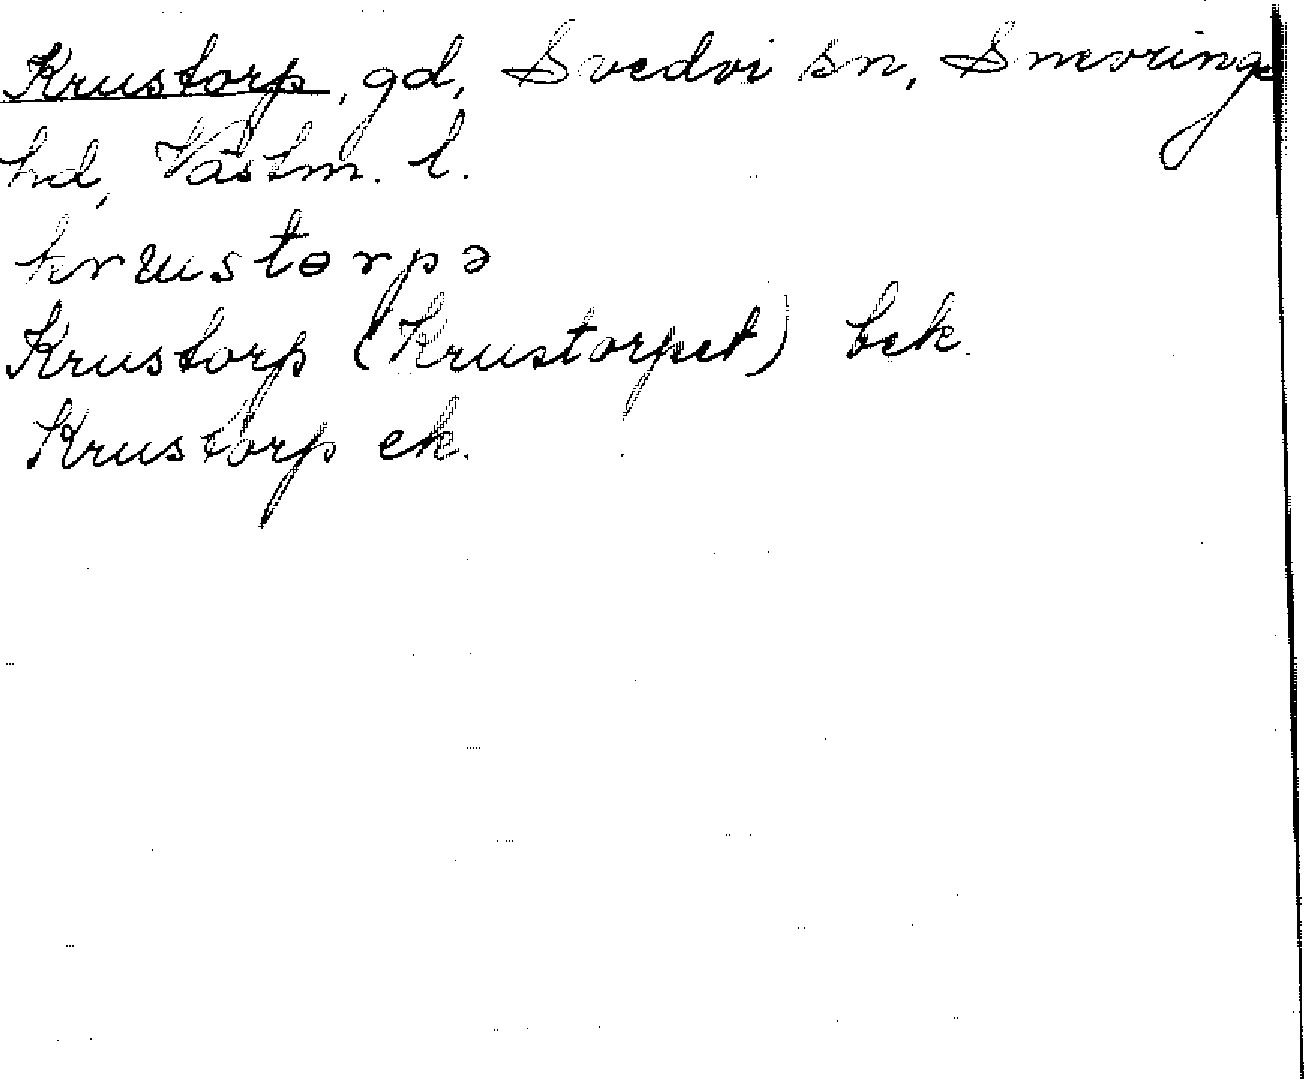 Krustorp, gd, Svedvi sn, Snevringe
hd, Västm. l.
krɯstɵrpə
Krustorp (Krustorpet) bek.
Krustorp ek.